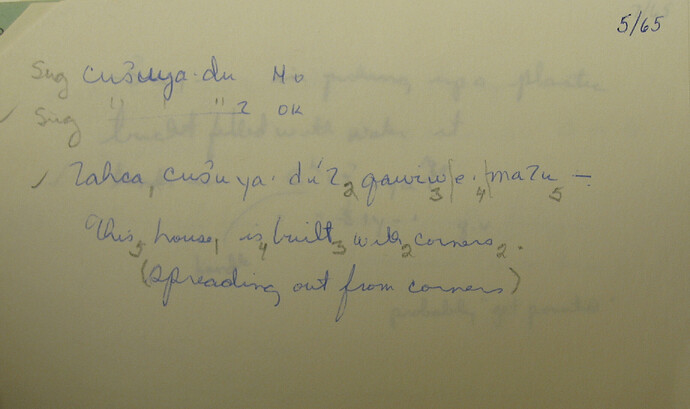 5/65
Sug cušuya·du No
✓ Sug " " ʔ OK
✓ ʔahca₁ cušuya·du´ʔ₂ qawiw₃|e·₄|maʔu₅ =
This₅ house₁ is₄ built₃ with₂ corners₂.
(spreading out from corners)